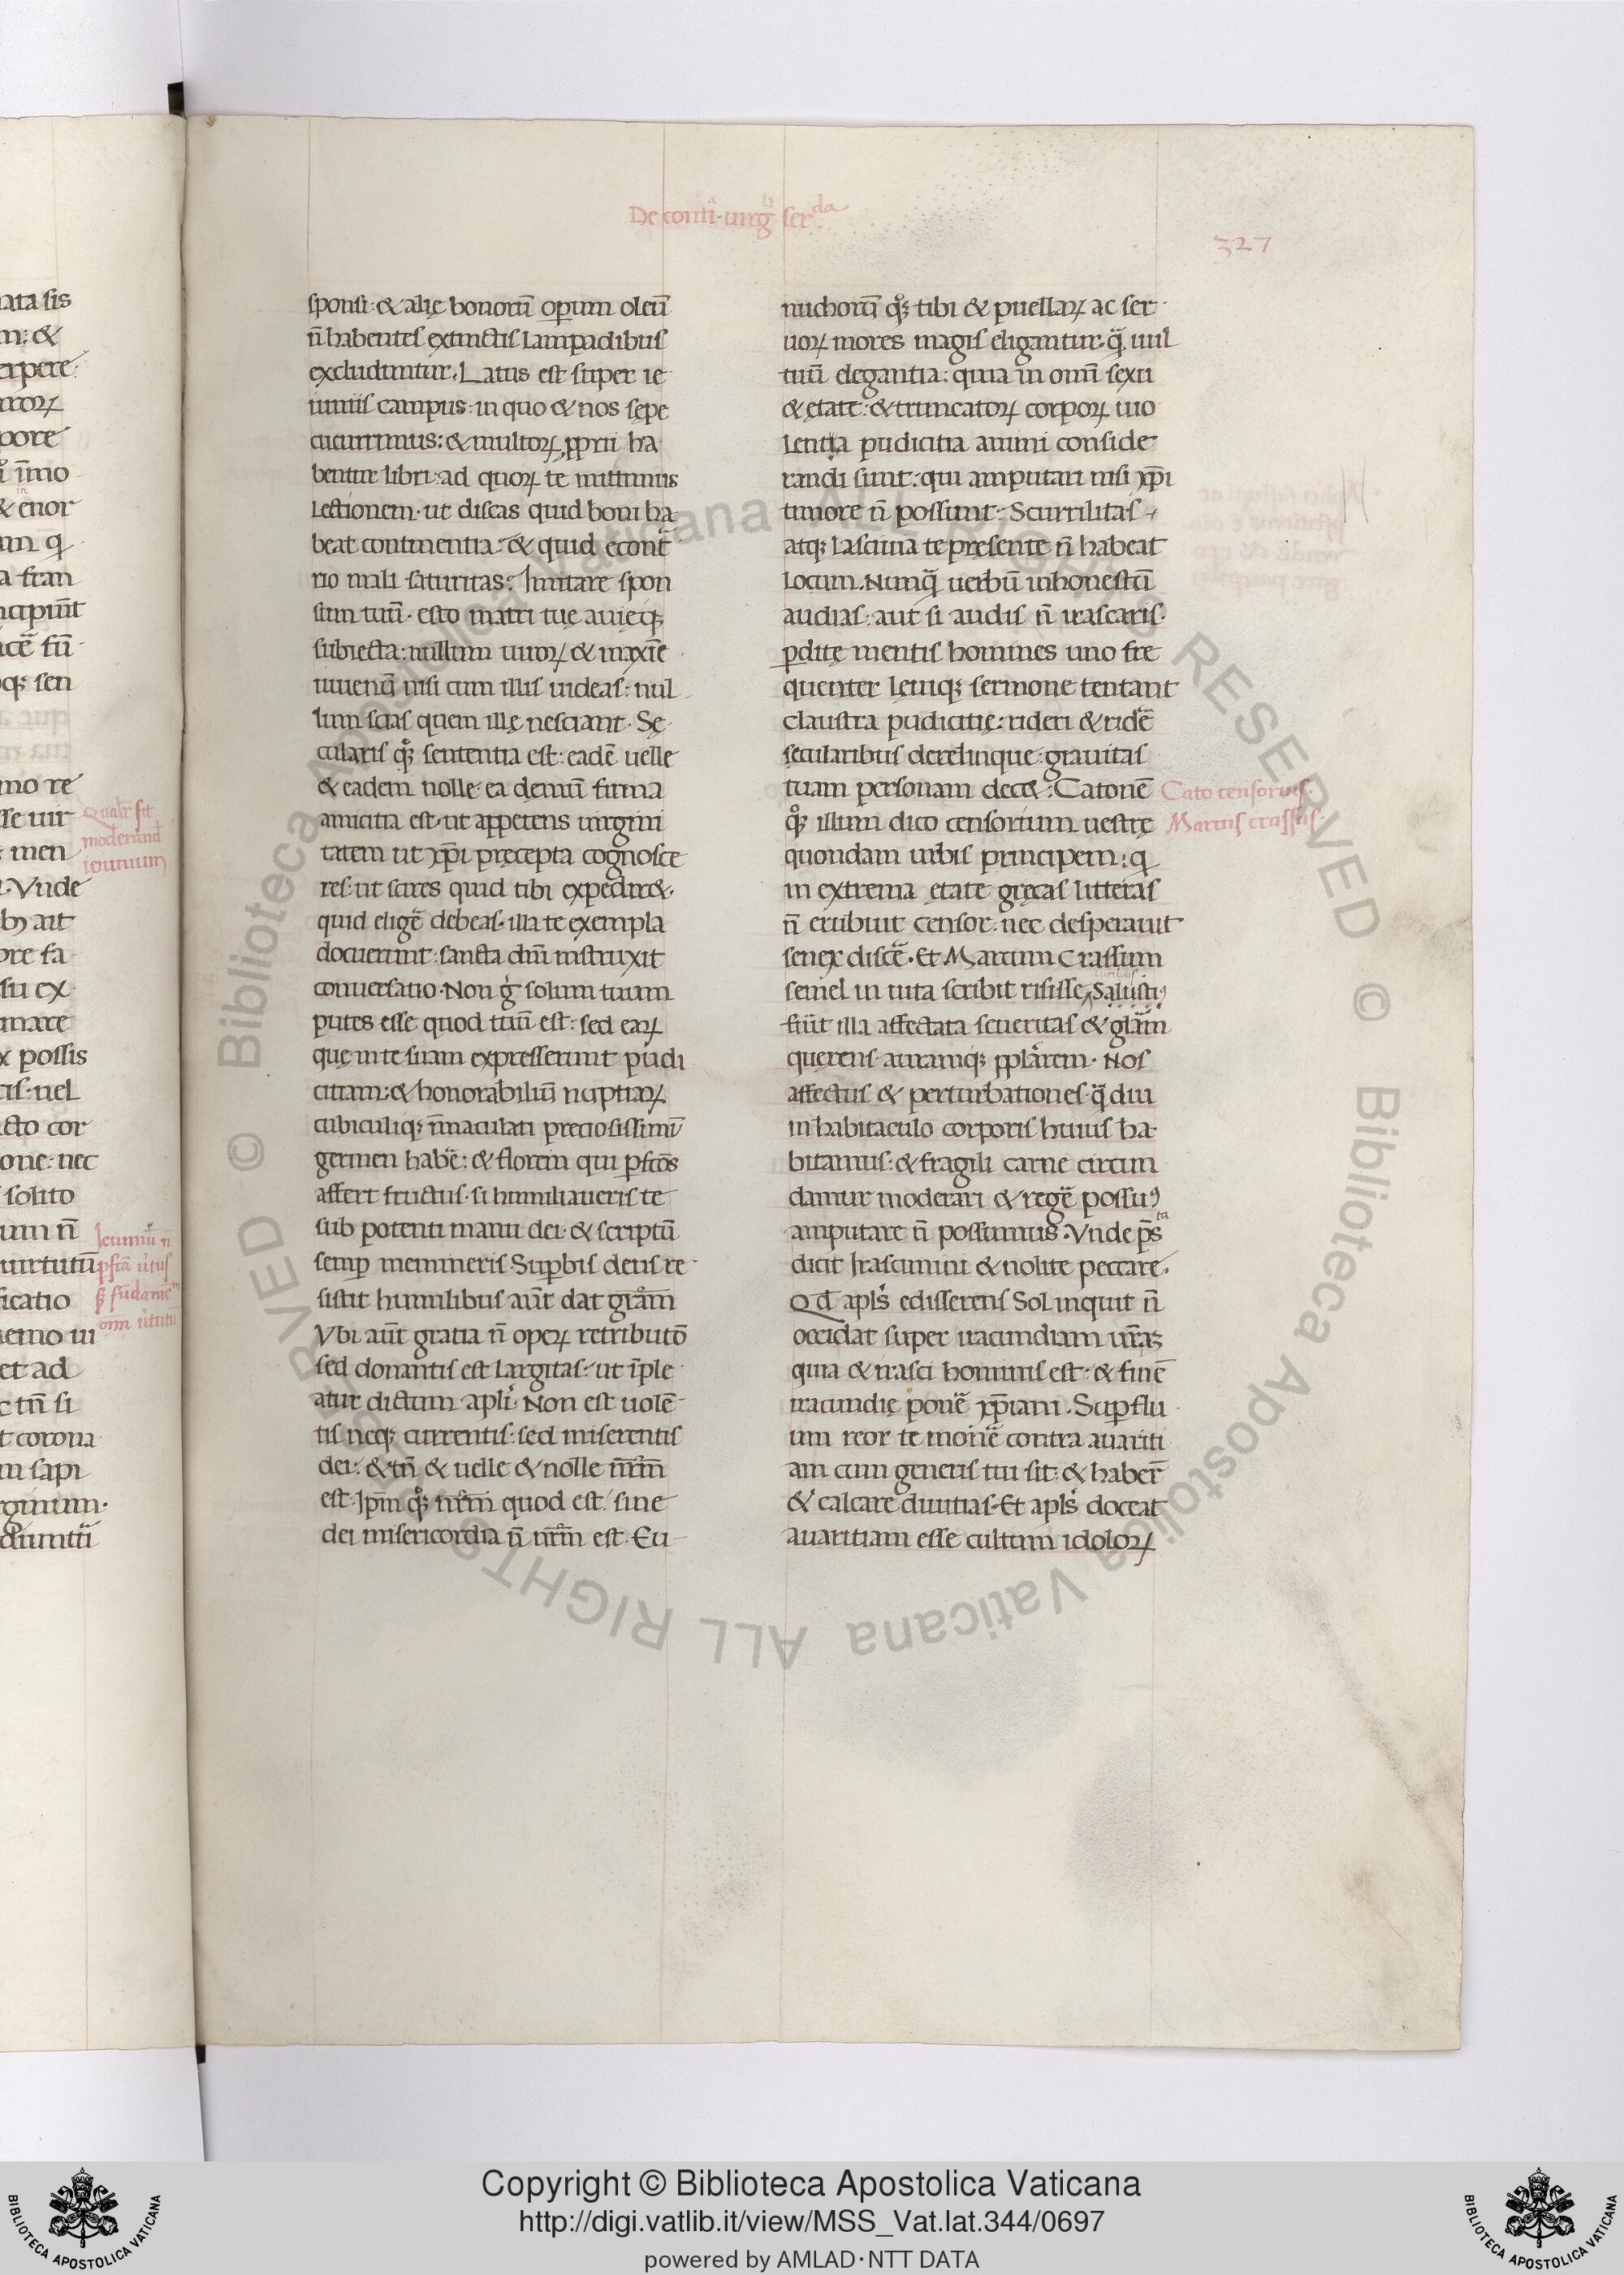 De conti. uirg. ser da
327
sponsi: & alię bonoru᷒ operum oleū
n̄ habentes extinctis lampadibus
excluduntur. Latus est super ie
iuniis campus: in quo & nos sępe
cucurrimus: & multoꝝ ꝓprii ha
bentur libri: ad quoꝝ te mittimus
lectionem. ut discas quid boni ha
beat continentia: & quid econt̄
rio mali saturitas. Imitare spon
sum tuū. esto matri tuę auięqꝫ
subiecta: nullum uiroꝝ & maxīe
iuuenū nisi cum illis uideas: nul
lum scias quem illę nesciant. Sę
cularis qͦꝫ sententia est: eadē uelle
& eadem nolle. ea demū firma
amicitia est. ut appetens uirgini
tatem ut xp̄i pręcepta cognosce
res. ut scires quid tibi expediret.
quid eligē debeas. illa te exempla
docuerunt. sancta dn̄i instruxit
conuersatio. Non gͦ solum tuum
putes esse quod tuū est: sed eaꝝ
quę in te suam expresserunt pudi
citiam: & honorabiliū nuptiaꝝ
cubiculiqꝫ īmaculati preciosissimū
germen habē: & florem qui ꝑfectos
affert fructus. si humiliaueris te
sub potenti manu dei. & scriptū
semꝑ memineris. Suꝑbis deus re
sistit humilibus aūt dat grām
Vbi aūt gratia n̄ opeꝝ retributō
sed donantis est largitas: ut īple
atur dictum apl̄i. Non est uolē
tis neqꝫ currentis: sed miserentis
dei: & tn̄ & uelle & nolle nr̄m
est. Ip̄m qͦꝫ nr̄m quod est sine
dei misericordia n̄ nr̄m est. Eu
nuchorū qͦꝫ tibi & puellaꝝ ac ser
uoꝝ mores magis eligantur. q̄ uul
tuū elegantia: quia in omī sexu
& ętate: & truncatoꝝ corpoꝝ uio
lentia pudicitia animi conside
randi sunt: qui amputari nisi xp̄i
timore n̄ possunt. Scurrilitas
atqꝫ lasciuia te pręsente n̄ habeat
locum. Nunq̄ uerbū inhonestū
audias: aut si audis n̄ irascaris.
ꝑditę mentis homines uno fre
quenter leuiqꝫ sermone tentant
claustra pudicitię: rideri & ridē
sęcularibus derelinque: grauitas
tuam personam decet. Catonē
qͦꝫ illum dico censorium uestrę
quondam urbis principem: q̇
in extrema ętate gręcas litteras
n̄ erubuit censor: nec desperauit
senex discē. Et Marcum Crassum
semel in uita scribit risisse Salusti⁹
fūit illa affectata seueritas & glām
quęrens auramqꝫ pplārem. Nos
affectus & perturbationes q̄ diu
in habitaculo corporis huius ha
bitamus: & fragili carne circun
damur moderari & regē possu⁹
amputare n̄ possumus. Vnde p̄s ta
dicit Irascimini & nolite peccare.
Qd̄ apl̄s edisserens Sol inquit n̄
occidat super iracundiam ur̄aꝫ
quia & irasci hominis est: & finē
iracundię ponē xp̄iani. Suꝑflu
um reor te monē contra auariti
am cum generis tui sit: & habere᷒
& calcare diuitias. Et apl̄s doceat
auaritiam esse cultum idoloꝝ
Cato censorius.
Marcus crassus.
Copyright © Biblioteca Apostolica Vaticana
http://digi.vatlib.it/view/MSS_Vat.lat.344/0697
powered by AMLAD·NTT DATA